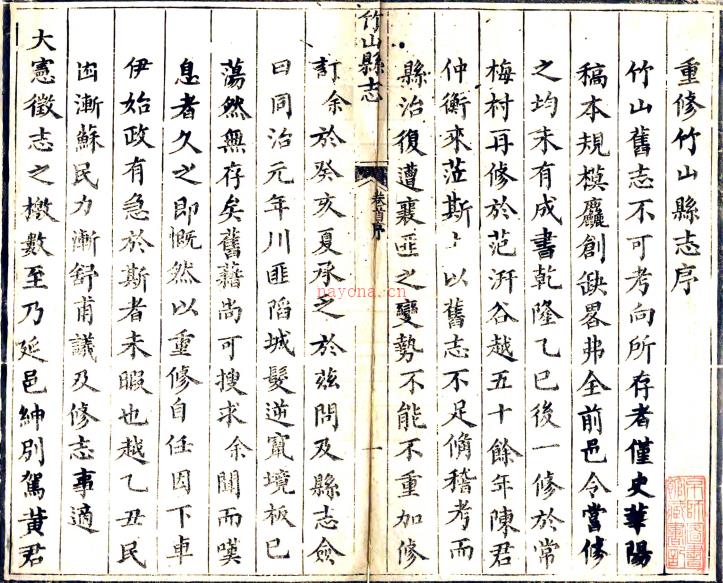 重修竹山縣志序
竹山舊志不可考向所存者僅史華陽
稿本規模麤創缺畧弗全前邑令常修
之均未有成書乾隆乙巳後一修於常
梅村再修於范湃谷越五十餘年陳君
仲衡來蒞斯土以舊志不足備稽考而
縣治復遭襄匪之變勢不能不重加修
竹山縣志
卷首序
一
訂余於癸亥夏承乏於茲問及縣志僉
曰同治元年川匪陷城髮逆竄境板已
蕩然無存矣舊藉尚可搜求余聞而嘆
息者久之即慨然以重修自任因下車
伊始政有急於斯者未暇也越乙丑民
困漸蘇民力漸舒甫議及修志事適
大憲徵志之檄數至乃延邑紳別駕黃君
nayona.cn